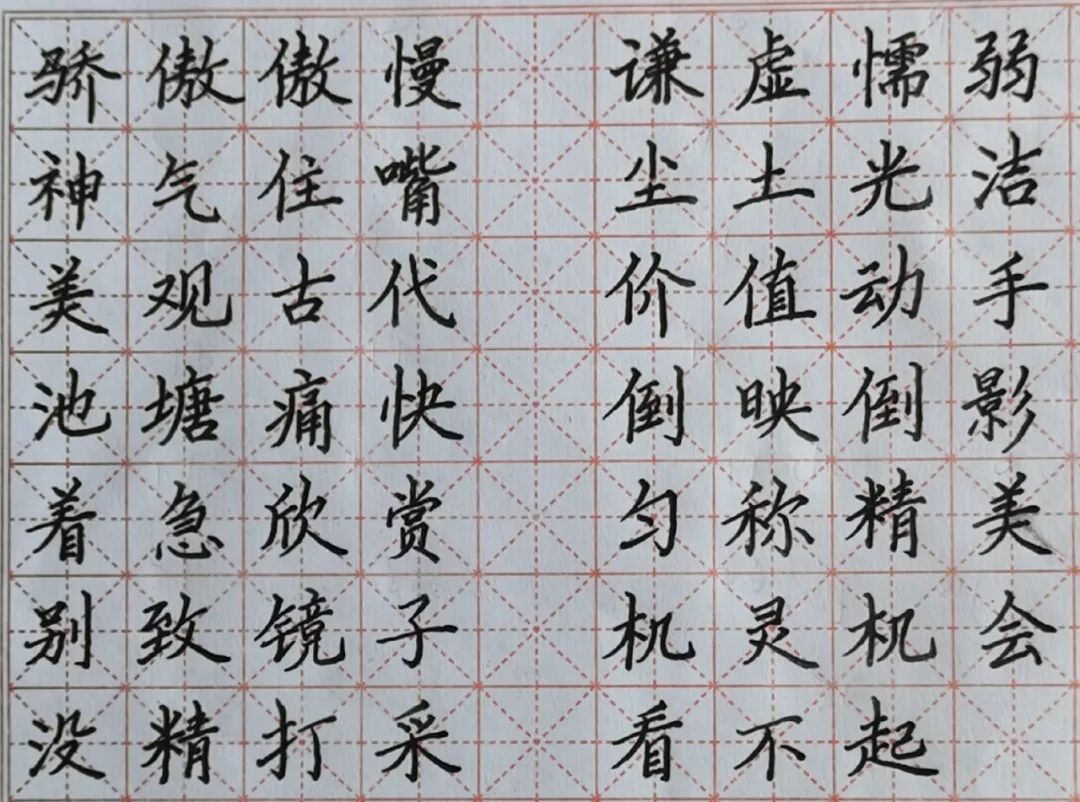 骄傲傲慢 谦虚懦弱
神气住嘴 尘土光洁
美观古代 价值动手
池塘痛快 倒映倒影
着急欣赏 匀称精美
别致镜子 机灵机会
没精打采 看不起